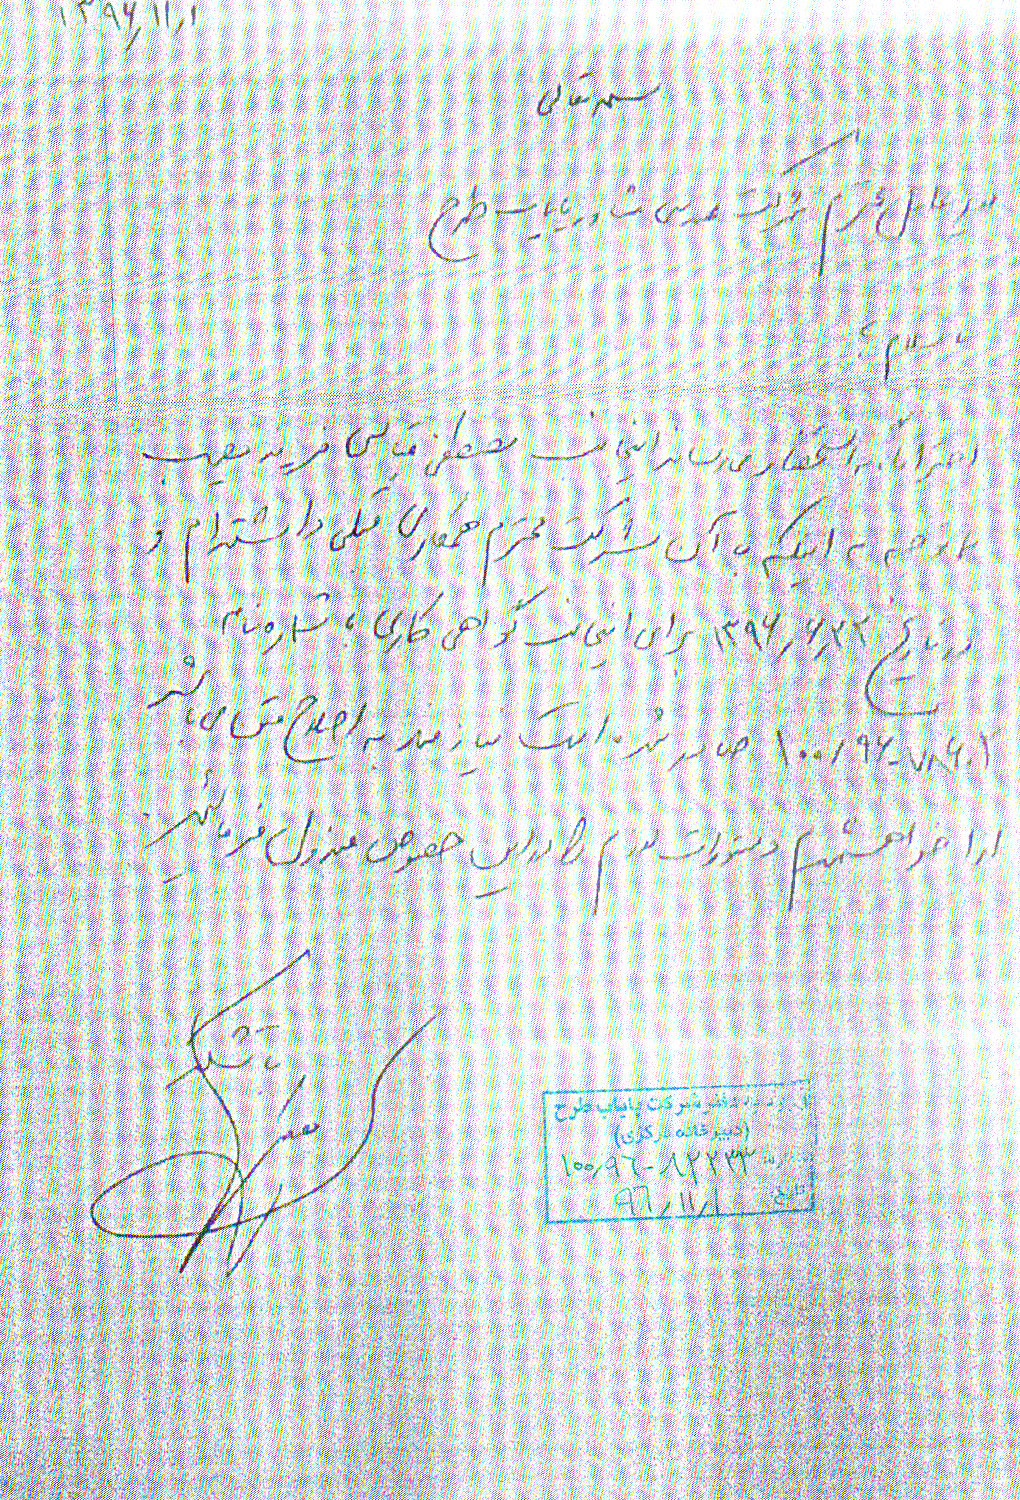 ۱۳۹۶/۱۱/۱
بسمه تعالی
مدیر عامل محترم شرکت مهندسی مشاور پایاب طرح
با سلام؛
احتراماً به استحضار می‌رساند اینجانب مصطفی فرزند
با توجه به اینکه با آن شرکت محترم همکاری قبلی داشته‌ام و
در تاریخ ۱۳۹۶/۶/۲۲ برای اینجانب گواهی کاری با شماره نامه
۱۰۰/۹۶-۷۸۶۰۲ صادر شده است نیازمند به اصلاح متن می‌باشد
لذا خواهشمندم دستورات لازم را در این خصوص مبذول فرمائید
با تشکر
شرکت پایاب طرح
(دبیرخانه مرکزی)
۱۰۰/۹۶-۸۲۲۳۳
تاریخ: ۹۶/۱۱/۱